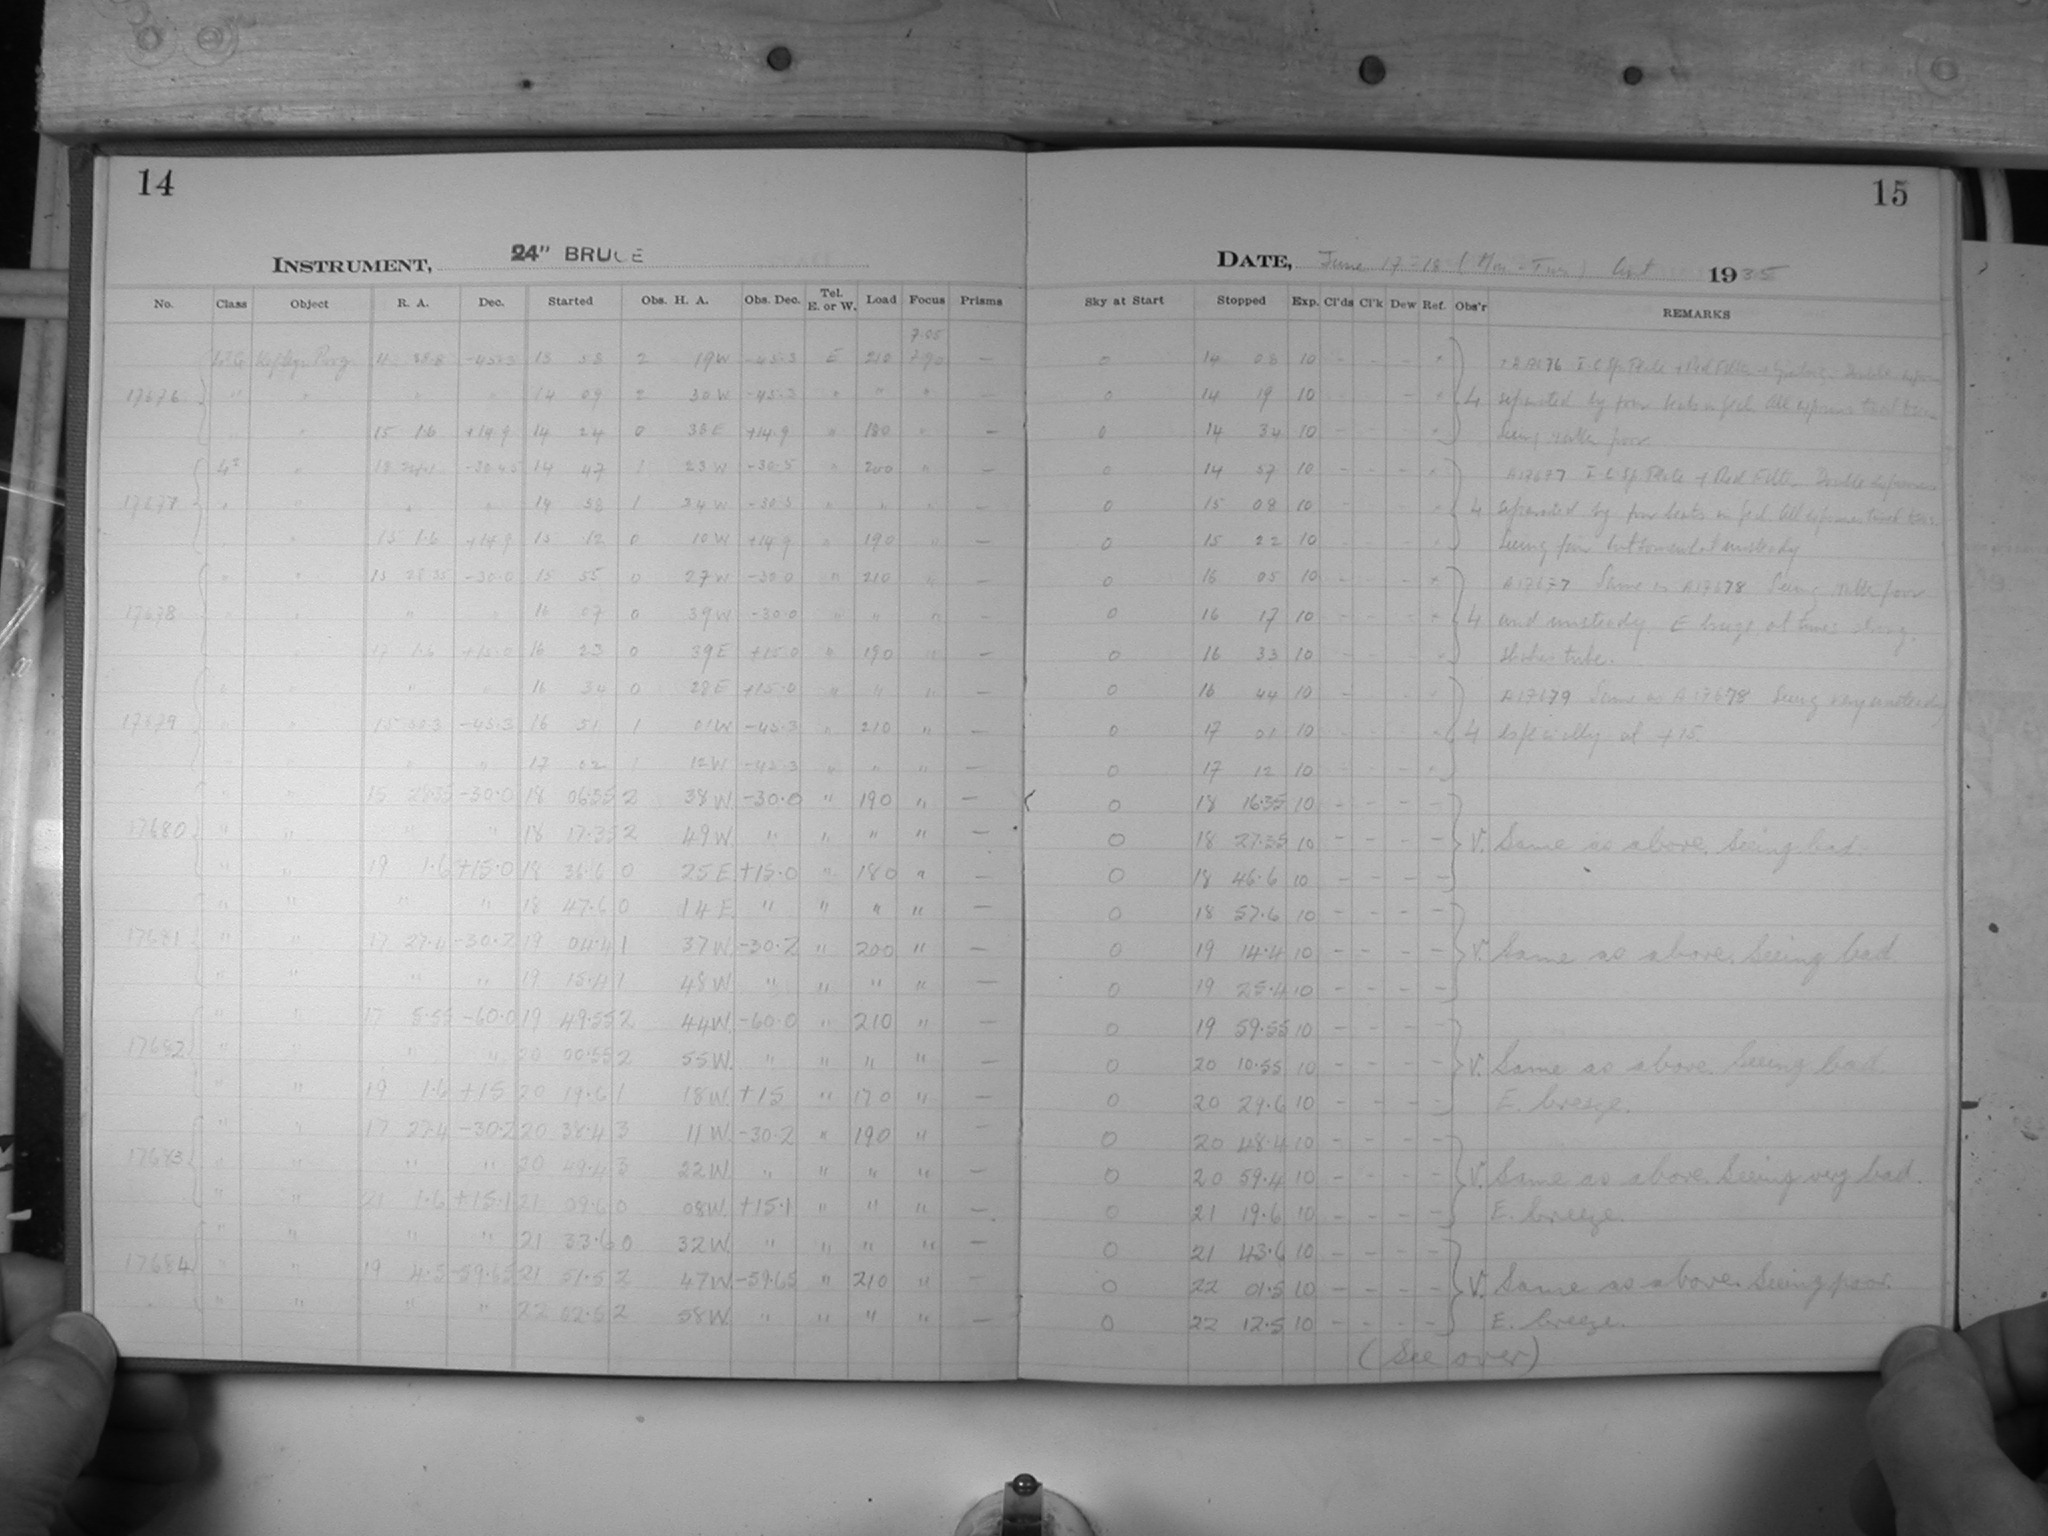 14
INSTRUMENT, 24" BRUCE
No. Class Object R. A. Dec. Started Obs. H. A. Obs. Dec. Tel. E. or W. Load Focus Prisms
7.05
-45.3 13 58 2 19W -45.3 E 210 7.90 —
17676 " " " " 14 09 2 30W -45.3 " " " —
" 15 1.6 +14.9 14 24 0 38E +14.9 " 180 " —
14 47 1 23W -30.5 " 200 " —
17677 " " " " 14 58 1 34W -30.5 " " " —
" " 15 1.6 +14.9 15 12 0 10W +14.9 " 190 " —
" " 15 28.35 -30.0 15 55 0 27W -30.0 " 210 " —
17678 " " 16 07 0 39W -30.0 " " " —
1.6 +15.0 16 23 0 39E +15.0 " 190 " —
" " " " 16 34 0 28E +15.0 " " " —
17679 " " 15 -45.3 16 51 1 01W -45.3 " 210 " —
" " 17 02 1 12W -45.3 " " " —
" " 15 28.35 -30.0 18 06.35 2 38W -30.0 " 190 " —
17680 " " " 18 17.35 2 49W. " " " " —
" " 19 1.6 +15.0 18 36.6 0 25E +15.0 " 180 " —
" " " " 18 47.6 0 14E " " " " —
17681 " " 17 27.4 -30.2 19 04.4 1 37W -30.2 " 200 " —
" " " " 19 15.4 1 48W. " " " " —
" " 17 5.55 -60.0 19 49.55 2 44W. -60.0 " 210 " —
17682 " " " " 20 00.55 2 55W. " " " " —
" " 19 1.6 +15 20 19.6 1 18W. +15 " 170 " —
" " 17 27.4 -30.2 20 38.4 3 11W. -30.2 " 190 " —
17683 " " " " 20 49.4 3 22W. " " " " —
" " 21 1.6 +15.1 21 09.6 0 08W. +15.1 " " " —
" " " " 21 33.6 0 32W. " " " " —
17684 " " 19 4.5 -59.65 21 51.5 2 47W -59.65 " 210 " —
" " " " 22 02.5 2 58W. " " " " —
15
DATE, June 17-18 (Mon-Tues) 1935
Sky at Start Stopped Exp. Cl'ds Cl'k Dew Ref. Obs'r REMARKS
0 14 08 10 - - - Plate + Red Filter Double
0 14 19 10 - - - 4 separated by four
0 14 34 10 - - - Seeing rather poor
0 14 57 10 - - - A17677 Plate + Red Filter Double exposures
0 15 08 10 - - - 4 separated by four
0 15 22 10 - - - Seeing unsteady
0 16 05 10 - - - A17677 Same as A17678 Seeing rather poor
0 16 17 10 - - - 4 and unsteady. E at times
0 16 33 10 - - - tube.
0 16 44 10 - - - A17679 Same as A17678 Seeing very unsteady
0 17 01 10 - - - 4 especially at +15.
0 17 12 10 - - -
0 18 16.35 10 - - - -
0 18 27.35 10 - - - - V. Same as above. Seeing bad.
0 18 46.6 10 - - - -
0 18 57.6 10 - - - -
0 19 14.4 10 - - - - V. Same as above. Seeing bad.
0 19 25.4 10 - - - -
0 19 59.55 10 - - - -
0 20 10.55 10 - - - - V. Same as above. Seeing bad.
0 20 29.6 10 - - - - E. breeze.
0 20 48.4 10 - - - -
0 20 59.4 10 - - - - V. Same as above. Seeing very bad.
0 21 19.6 10 - - - - E. breeze.
0 21 43.6 10 - - - -
0 22 01.5 10 - - - - V. Same as above. Seeing poor.
0 22 12.5 10 - - - - E. breeze.
(See over)